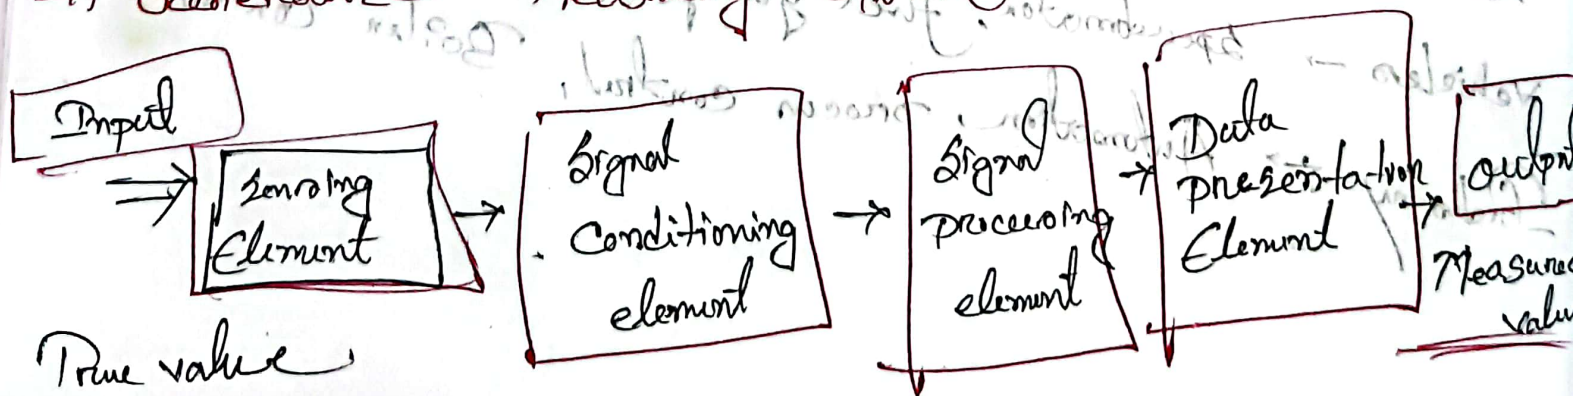 Input
Sensing
Element
Signal
Conditioning
element
Signal
processing
element
Data
presentation
Element
True value